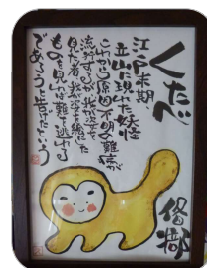 くたべ
江戸末期、
立山に現れた妖怪
これから原因不明の難病が
流行するが、我が姿を
見た者、我が姿を絵にした
ものを見れば難を逃れる
であろうと告げたという